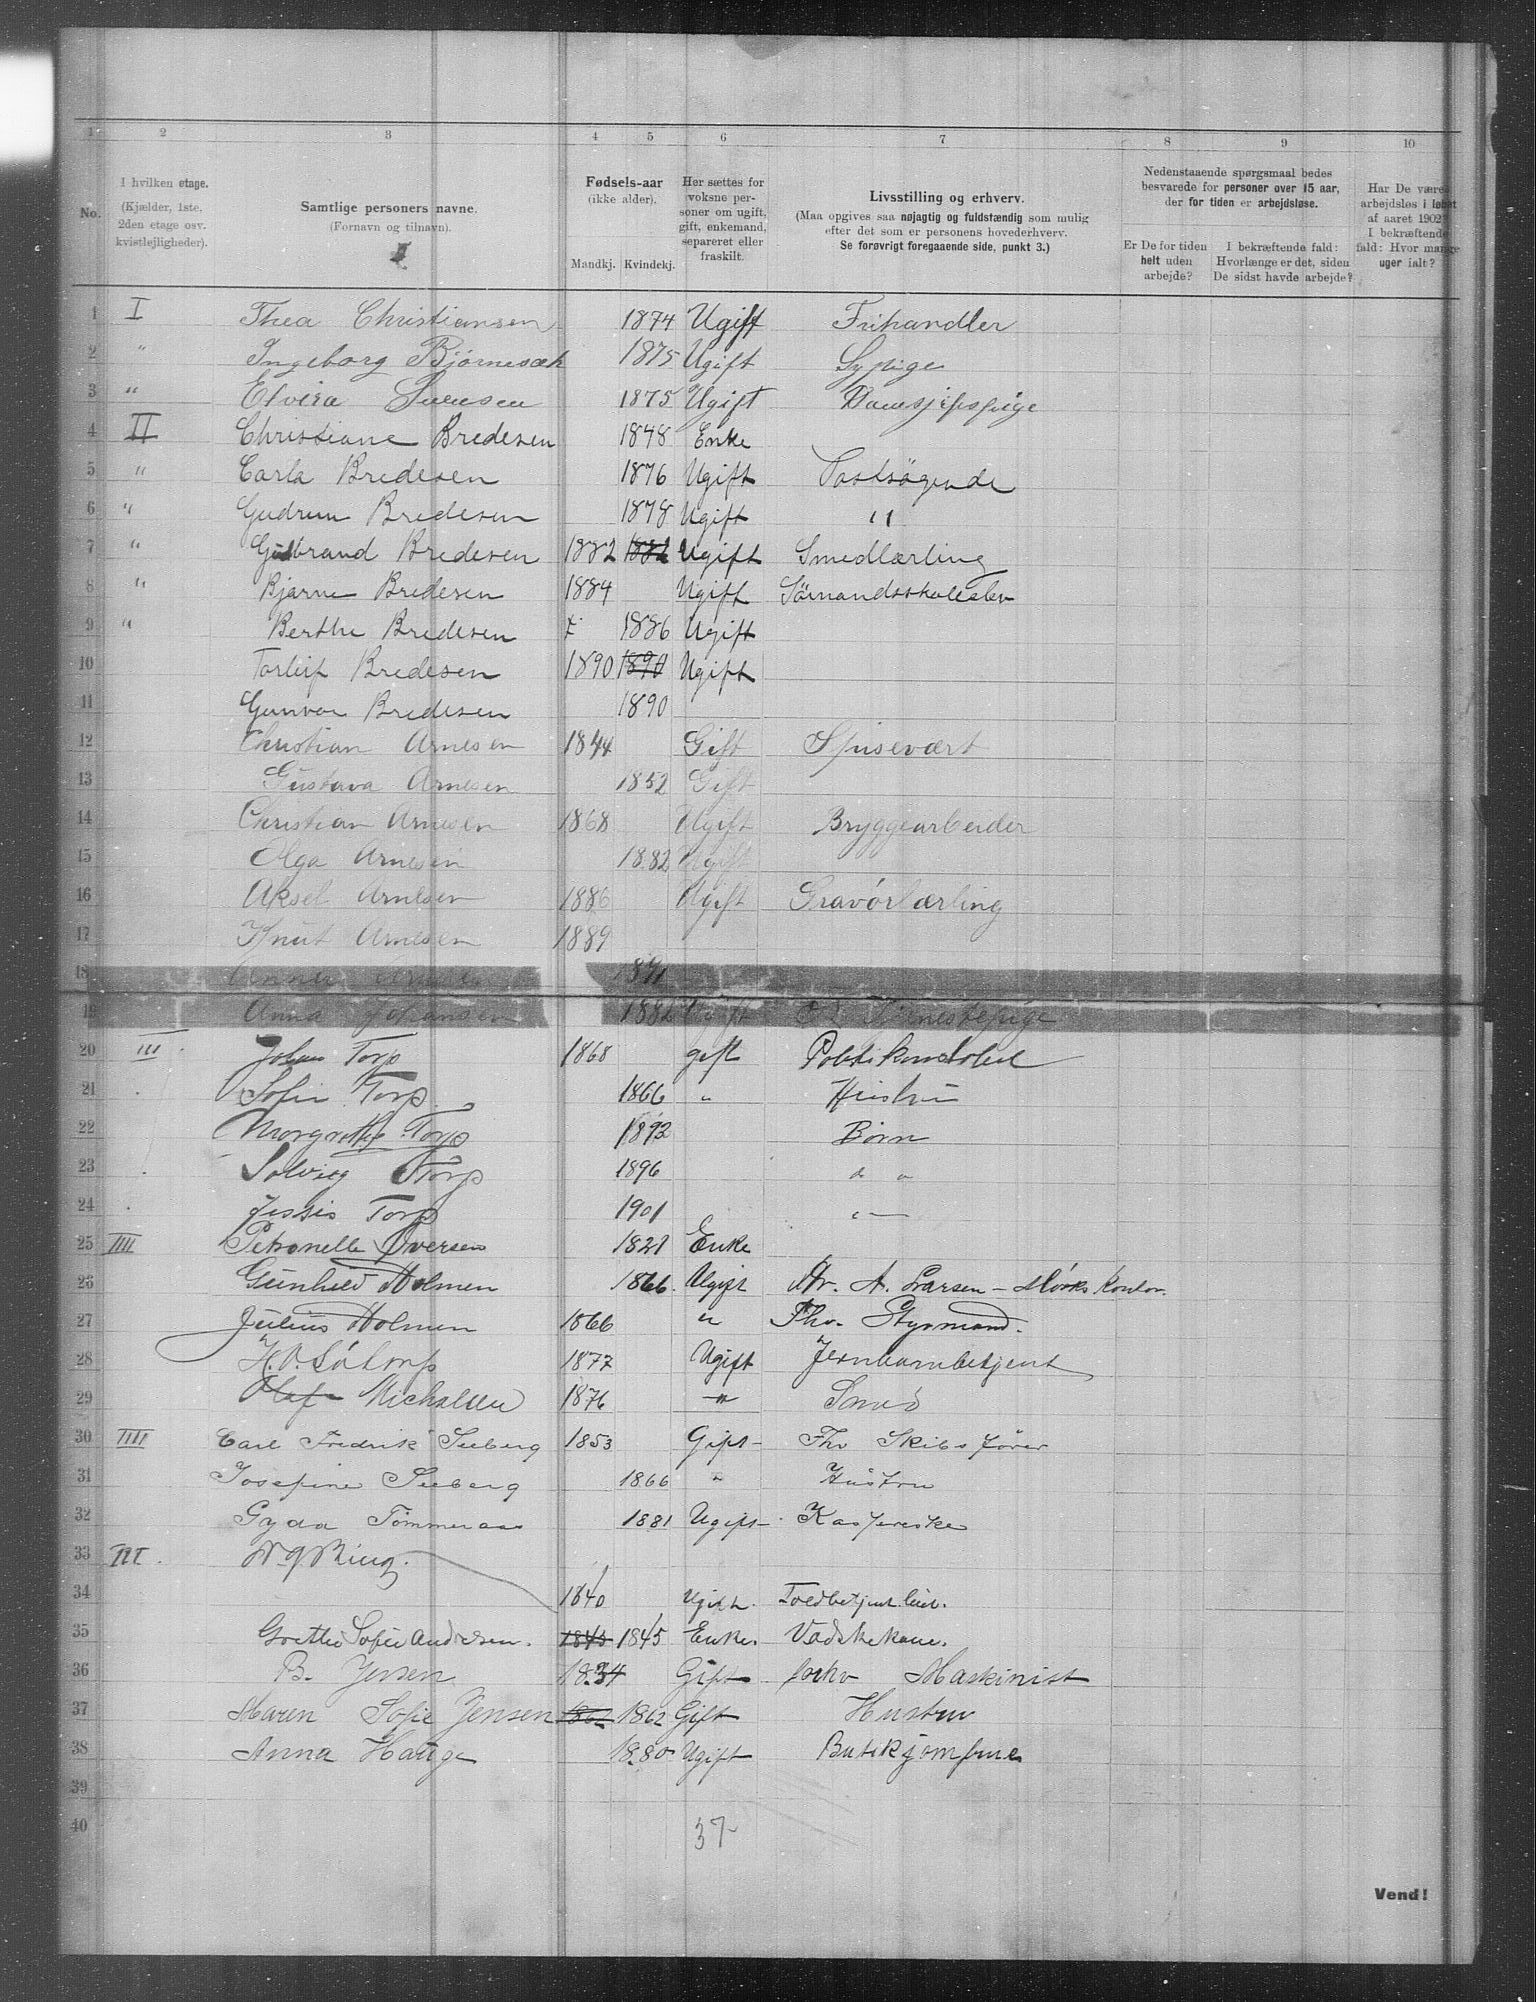 1 2 3 4 5 6 7 8 9 10
No.
I hvilken etage.
(Kjælder, 1ste.
2den etage osv.
kvistlejligheder).
Samtlige personers navne.
(Fornavn og tilnavn).
Fødsels-aar
(ikke alder).
Mandkj. Kvindekj.
Her sættes for
voksne per-
soner om ugift,
gift, enkemand,
separeret eller
fraskilt.
Livsstilling og erhverv.
(Maa opgives saa nøjagtig og fuldstændig som mulig
efter det som er personens hovederhverv.
Se forøvrigt foregaaende side, punkt 3.)
Nedenstaaende spørgsmaal bedes
besvarede for personer over 15 aar,
der for tiden er arbejdsløse.
Er De for tiden
helt uden
arbejde?
I bekræftende fald:
Hvorlænge er det, siden
De sidst havde arbejde?
Har De været
arbejdsløs i løbet
af aaret 1902?
I bekræftende
fald: Hvor mange
uger ialt?
1 I Thea Christiansen 1874 Ugift Frihandler
2 " Ingeborg 1875 Ugift Sypige
3 " Elvira Svensen 1875 Ugift
4 II Christiane Bredesen 1848 Enke
5 " Carla Bredesen 1876 Ugift Postsøgende
6 " Gudrun Bredesen 1878 Ugift "
7 " Gulbrand Bredesen 1882 1882 Ugift Smedlærling
8 " Bjarne Bredesen 1884 Ugift Sömandsskoleelev
9 " Berthe Bredesen 1886 Ugift
10 Torleif Bredesen 1890 1890 Ugift
11 Gunvor Bredesen 1890
12 Christian Arnesen 1844 Gift Spisevært
13 Gustava Arnesen 1852 Gift
14 Christian Arnesen 1868 Ugift Bryggearbeider
15 Olga Arnesen 1882 Ugift
16 Aksel Arnesen 1886 Ugift Gravörlærling
17 Knut Arnesen 1889
18 Arnesen 1891
19 Anna Johansen 1882 Ugift Tjenestepige
20 III Johan Torp 1868 gift Politikonstabel
21 Sofie Torp 1866 " Hustru
22 Margrethe Torp 1892 Børn
23 Solveig Torp 1896 " "
24 Torp 1901 "
25 IIII Petronelle Iversen 1821 Enke
26 Gunhild Holmen 1866. Ugift A. Larsen - Mörks Kontor.
27 Julius Holmen 1866 " Fhv. Styrmand.
28 1877 Ugift Jernbanebetjent
29 Olaf Michalsen 1876 " Smed
30 IIIII Carl Fredrik Seeberg 1853 Gift Fhv Skibsfører
31 Josefine Seeberg 1866 " Hustru
32 Gyda Tömmeraas 1881 Ugift
33 III.
34 1840 Ugift. Toldbetjent
35 Grethe Sofie Andersen. 1845 1845 Enke. Vadskekone.
36 B. Jensen 1834 Gift forhv Maskinist
37 Maren Sofie Jensen 1862 1862 Gift Hustru
38 Anna Hauge 1880 Ugift Butikjomfrue
39
40
37
Vend!